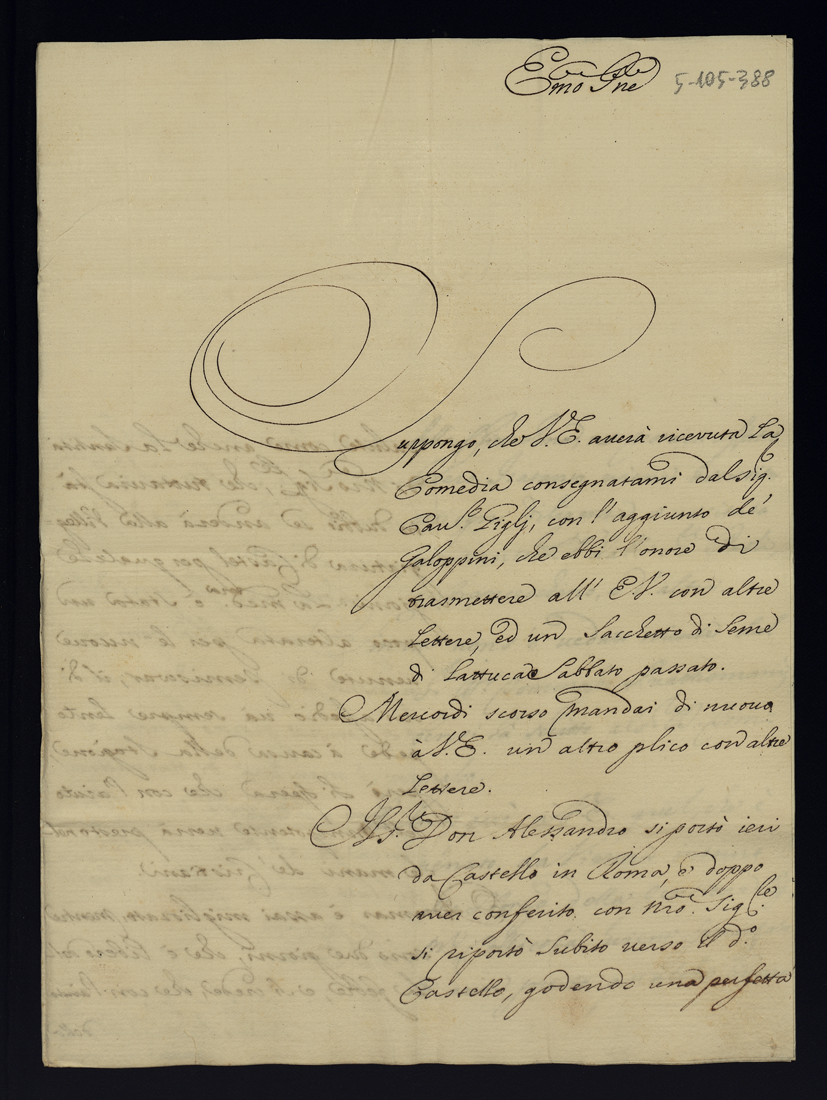 Emo Sne
5-105-388
Suppongo, che V. E. averà ricevuta La
Comedia consegnatami dal sig.
Cav.r Giglj, con l'aggiunto de'
Galoppini, che ebbi l'onore di
trasmettere all' E. V. con altre
Lettere, ed un Sacchetto di Seme
di Lattuca Sabbato passato.
Mercordi scorso mandai di nuovo
à V. E. un altro plico con altre
Lettere.
Don Alessandro si portò ieri
da Castello in Roma, e doppo
aver conferito con nro Sig.re
si riportò subito verso il d.o
Castello, godendo una perfetta